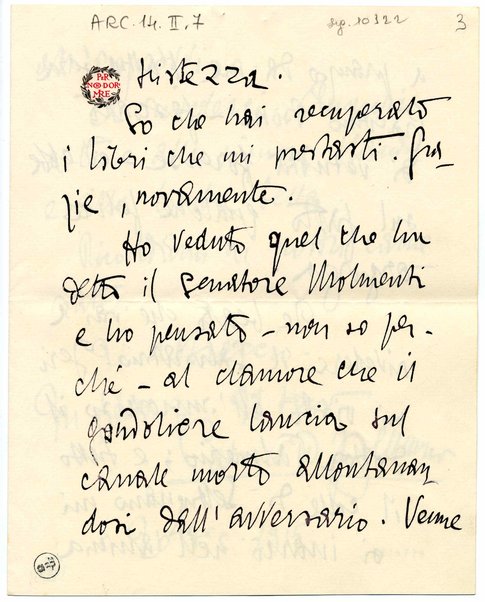 ARC. 14. II, 7
sig. 10322
3
PER
NON DOR
MIRE
tristezza.
So che hai recuperato
i libri che mi prestasti. Gra-
zie, novamente.
Ho veduto quel che ha
detto il Senatore Molmenti
e ho pensato – non so per-
ché – al clamore che il
gondoliere lancia sul
canale morto allontanan
dosi dall'avversario. Venne